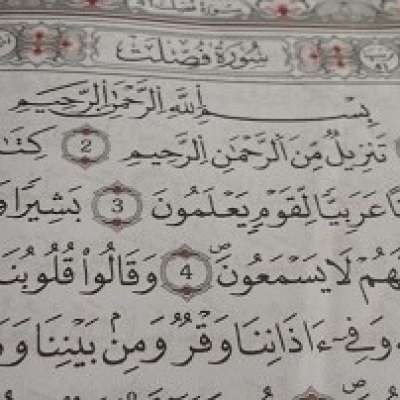 سُورَةُ فُصِّلَتْ
بِسْمِ اللَّهِ الرَّحْمَٰنِ الرَّحِيمِ
تَنزِيلٌ مِّنَ الرَّحْمَٰنِ الرَّحِيمِ 2 كِتَا
نًا عَرَبِيًّا لِّقَوْمٍ يَعْلَمُونَ 3 بَشِيرًا وَ
هُمْ لَا يَسْمَعُونَ 4 وَقَالُوا قُلُوبُنَا
وَفِي ءَاذَانِنَا وَقْرٌ وَمِنۢ بَيْنِنَا وَ